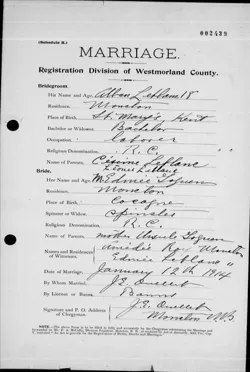 002439
(Schedule B.)
MARRIAGE.
Registration Division of Westmorland County.
Bridegroom.
His Name and Age, Alban Leblanc 18
Residence, Moncton
Place of Birth, St. Mary's Kent
Bachelor or Widower, Bachelor
Occupation, laborer
Religious Denomination, R.C.
Name of Parents, Leblanc
Leblanc
Bride.
Her Name and Age, Edmee Goguen
Residence, Moncton
Place of Birth, Cocagne
Spinster or Widow, Spinster
Religious Denomination, R.C.
Name of Parents, mother Goguen
Names and Residence of Witnesses, Amédie Roy Moncton
Edmée Leblanc "
Date of Marriage, January 12th 1914
By Whom Married, J.E. Ouellet
By License or Banns, Banns
Signature and P. O. Address of Clergyman, J.E. Ouellet
Moncton N.B.